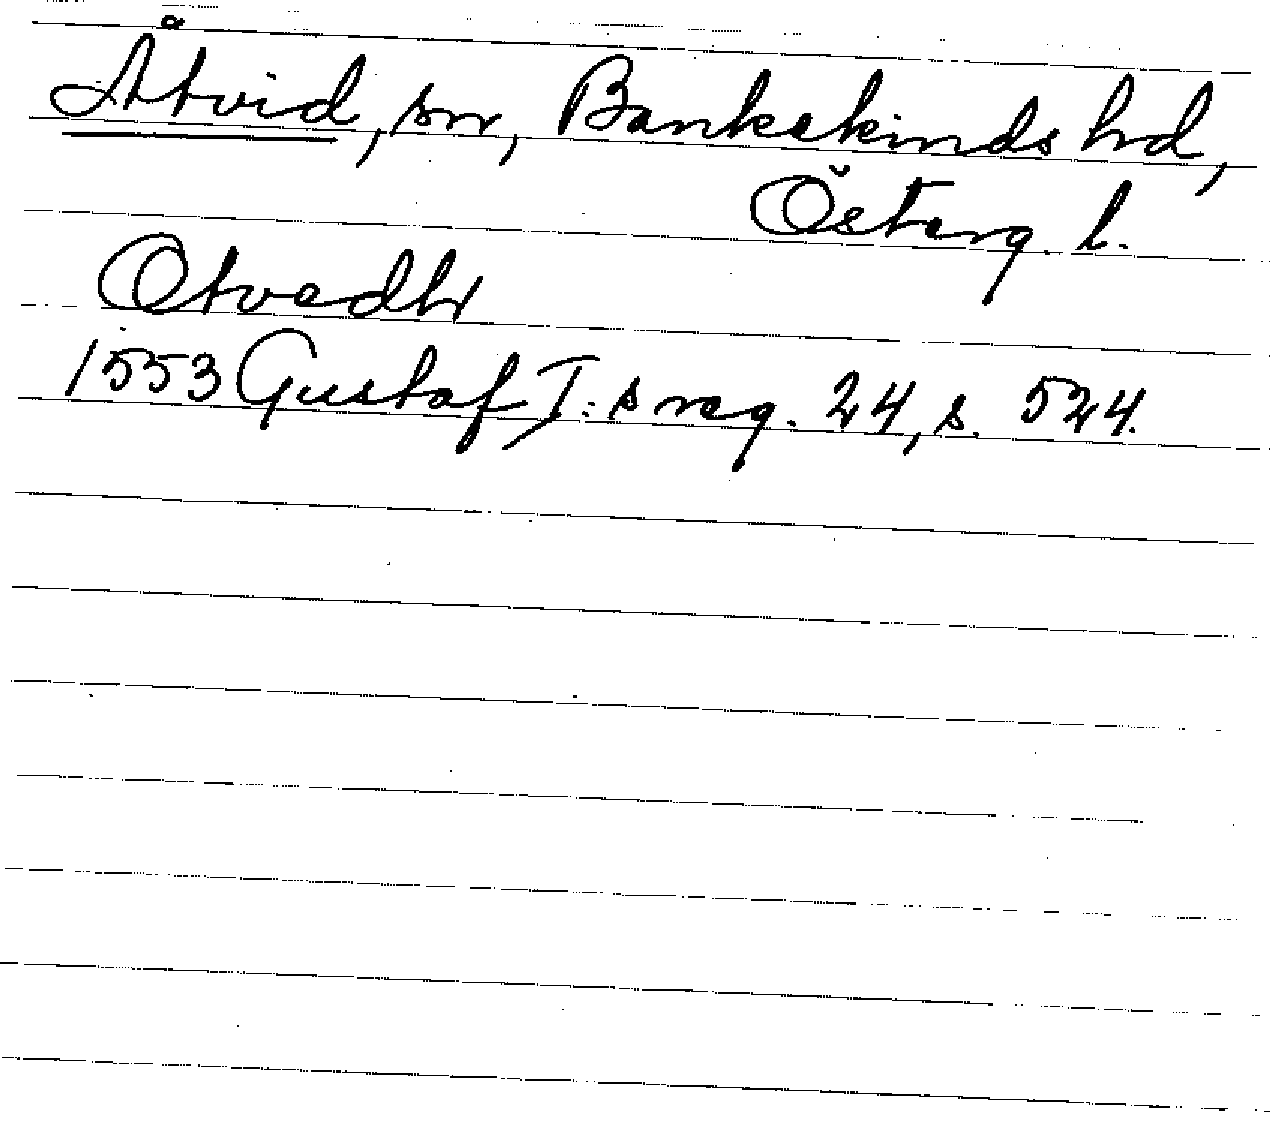 Åtvid, sn, Bankekinds hd,
Österg. l.
Otvedh
1553 Gustaf I:s reg. 24, s. 524.